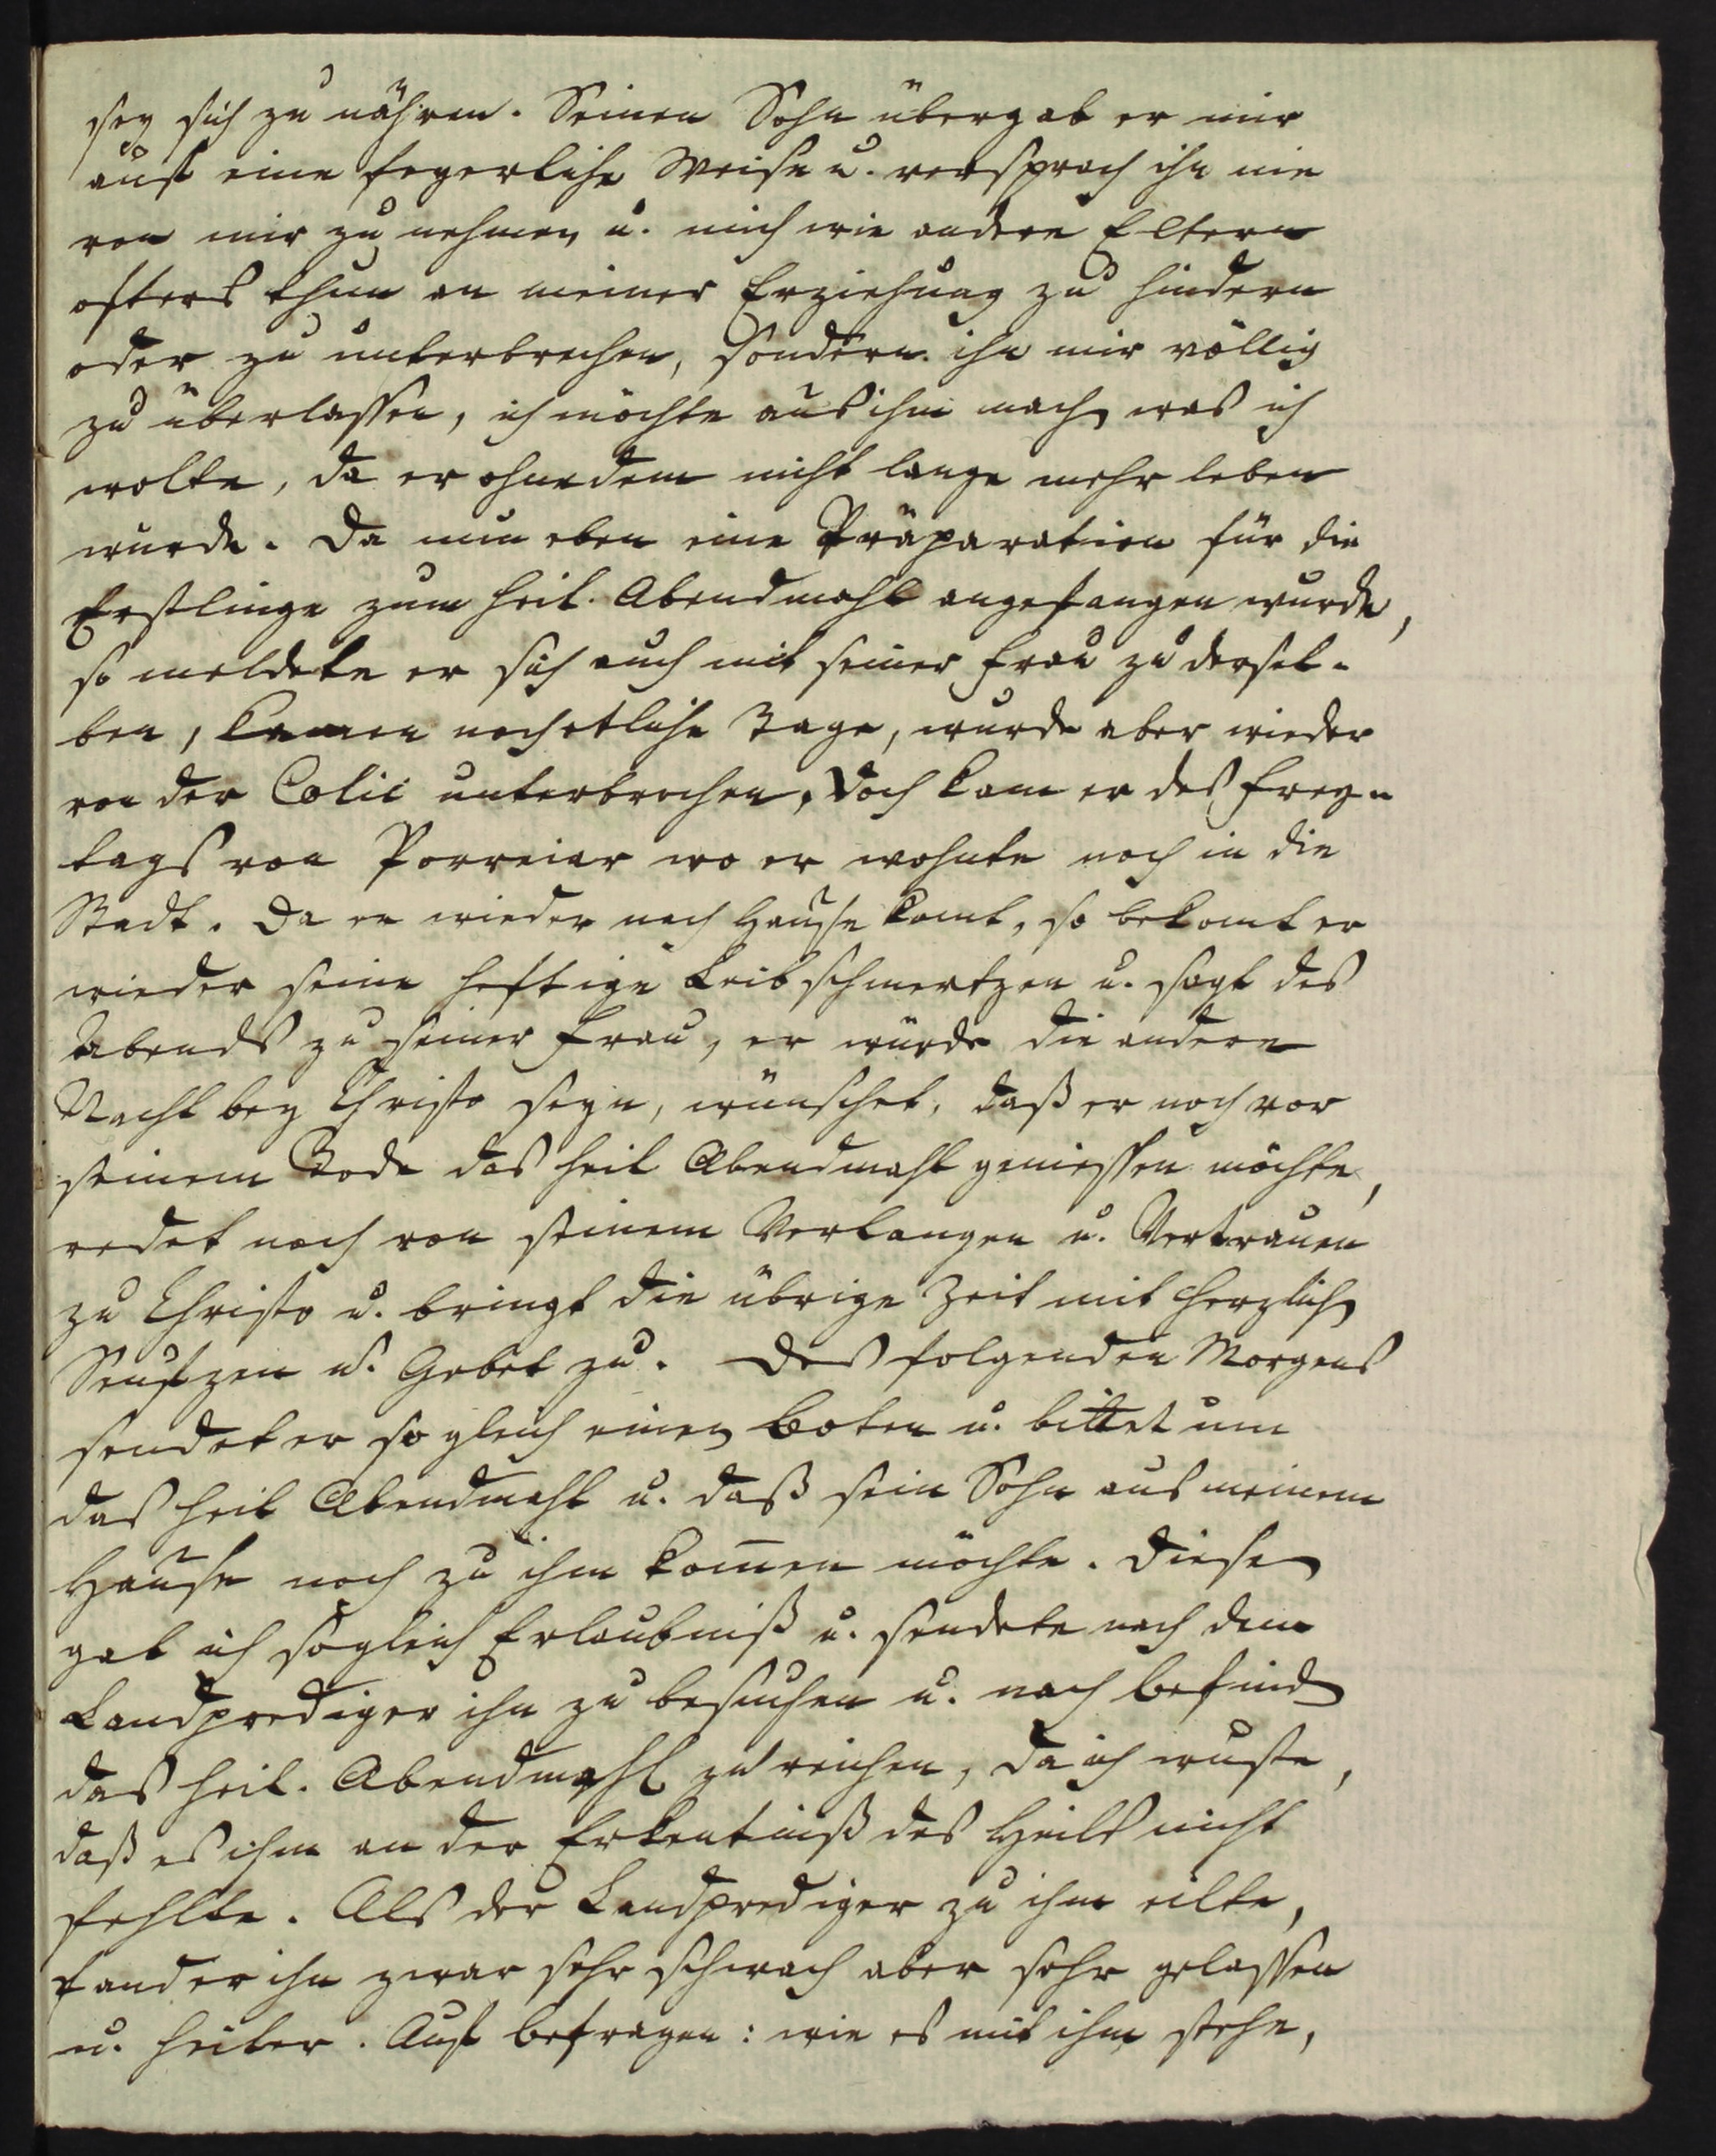 sey sich zu nähren. Seinen Sohn übergab er mir
auf eine feyerliche Weise u. versprach ihn nie
von mir zu nehmen u. mich wie andere Eltern
öfters thun an meiner Erziehung zu hindern
oder zu unterbrechen, sondern ihn mir völlig
zu überlassen, ich möchte aus ihm mach. was ich
wolte, da er ohnedem nicht lange mehr leben
würde. Da nun eben eine Präparation für die
Erstlinge zum heil. Abendmahl angefangen wurde,
so meldete er sich auch mit seiner Frau zu dersel-
ben, kamen noch etliche Tage, wurde aber wieder
von der Colic unterbrochen, doch kam er des Frey-
tags von Porreiar wo er wohnte noch in die
Stadt. Da er wieder nach Hause komt, so bekomt er
wieder seine heftige Leibschmertzen u. sagt des
Abends zu seiner Frau, er würde die andere
Nacht bey Christo seyn, wünschet, daß er noch vor
seinem Tode das heil Abendmahl geniessen möchte,
redet noch von seinem Verlangen u. Vertrauen
zu Christo u. bringt die übrige Zeit mit herzlich.
Seufzen u. Gebet zu. Des folgenden Morgens
sendet er so gleich einen Boten u. bittet um
das heil Abendmahl u. daß sein Sohn aus meinem
Hause noch zu ihm kom̅en möchte. Diesen
gab ich sogleich Erlaubniß u. sendete nach dem
Landprediger ihn zu besuchen u. nach befind.
das heil. Abendmahl zu reichen, da ich wuste,
daß es ihm an der Erkentniß des Heils nicht
fehlte. Als der Landprediger zu ihm eilte,
fand er ihn zwar sehr schwach aber sehr gelassen
u. heiter. Auf befragen: wie es mit ihm stehe,